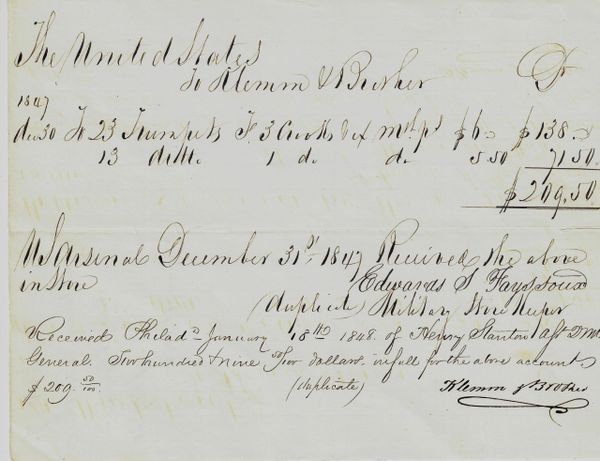 The United States
To Klemm & Brother Dr
1847
dec 30 To 23 Trumpets F. 3 Crooks & ex mth ps $6 $138.
13 ditto. 1 do. do. 5.50 71.50.
$209.50
US Arsenal December 31st 1847 Received the above
in Store Edwards S Fayssoux
(duplicate) Military Store Keeper
Received Philada January 18th 1848. of Henry Stanton Asst Q M.
General. Two hundred & nine dollars. in full for the above account.
$209. 50/100. (duplicate) Klemm & Brother